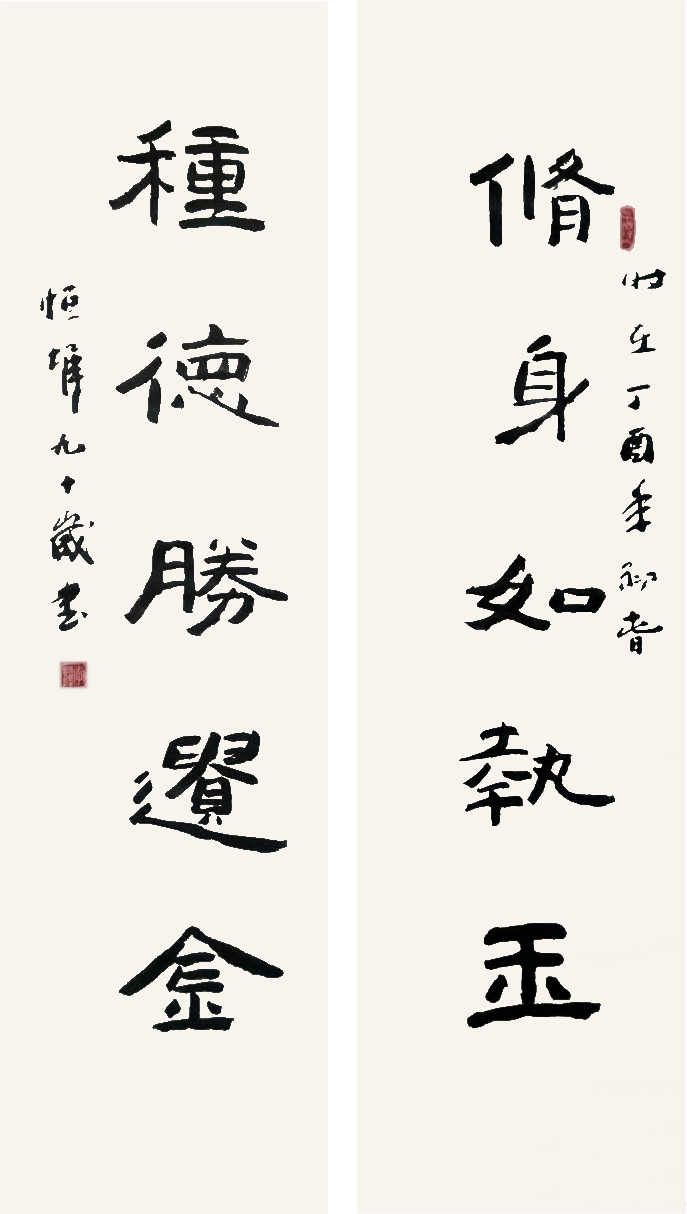 脩身如執玉
时在丁酉年初春
種德勝遺金
恒 九十歲書